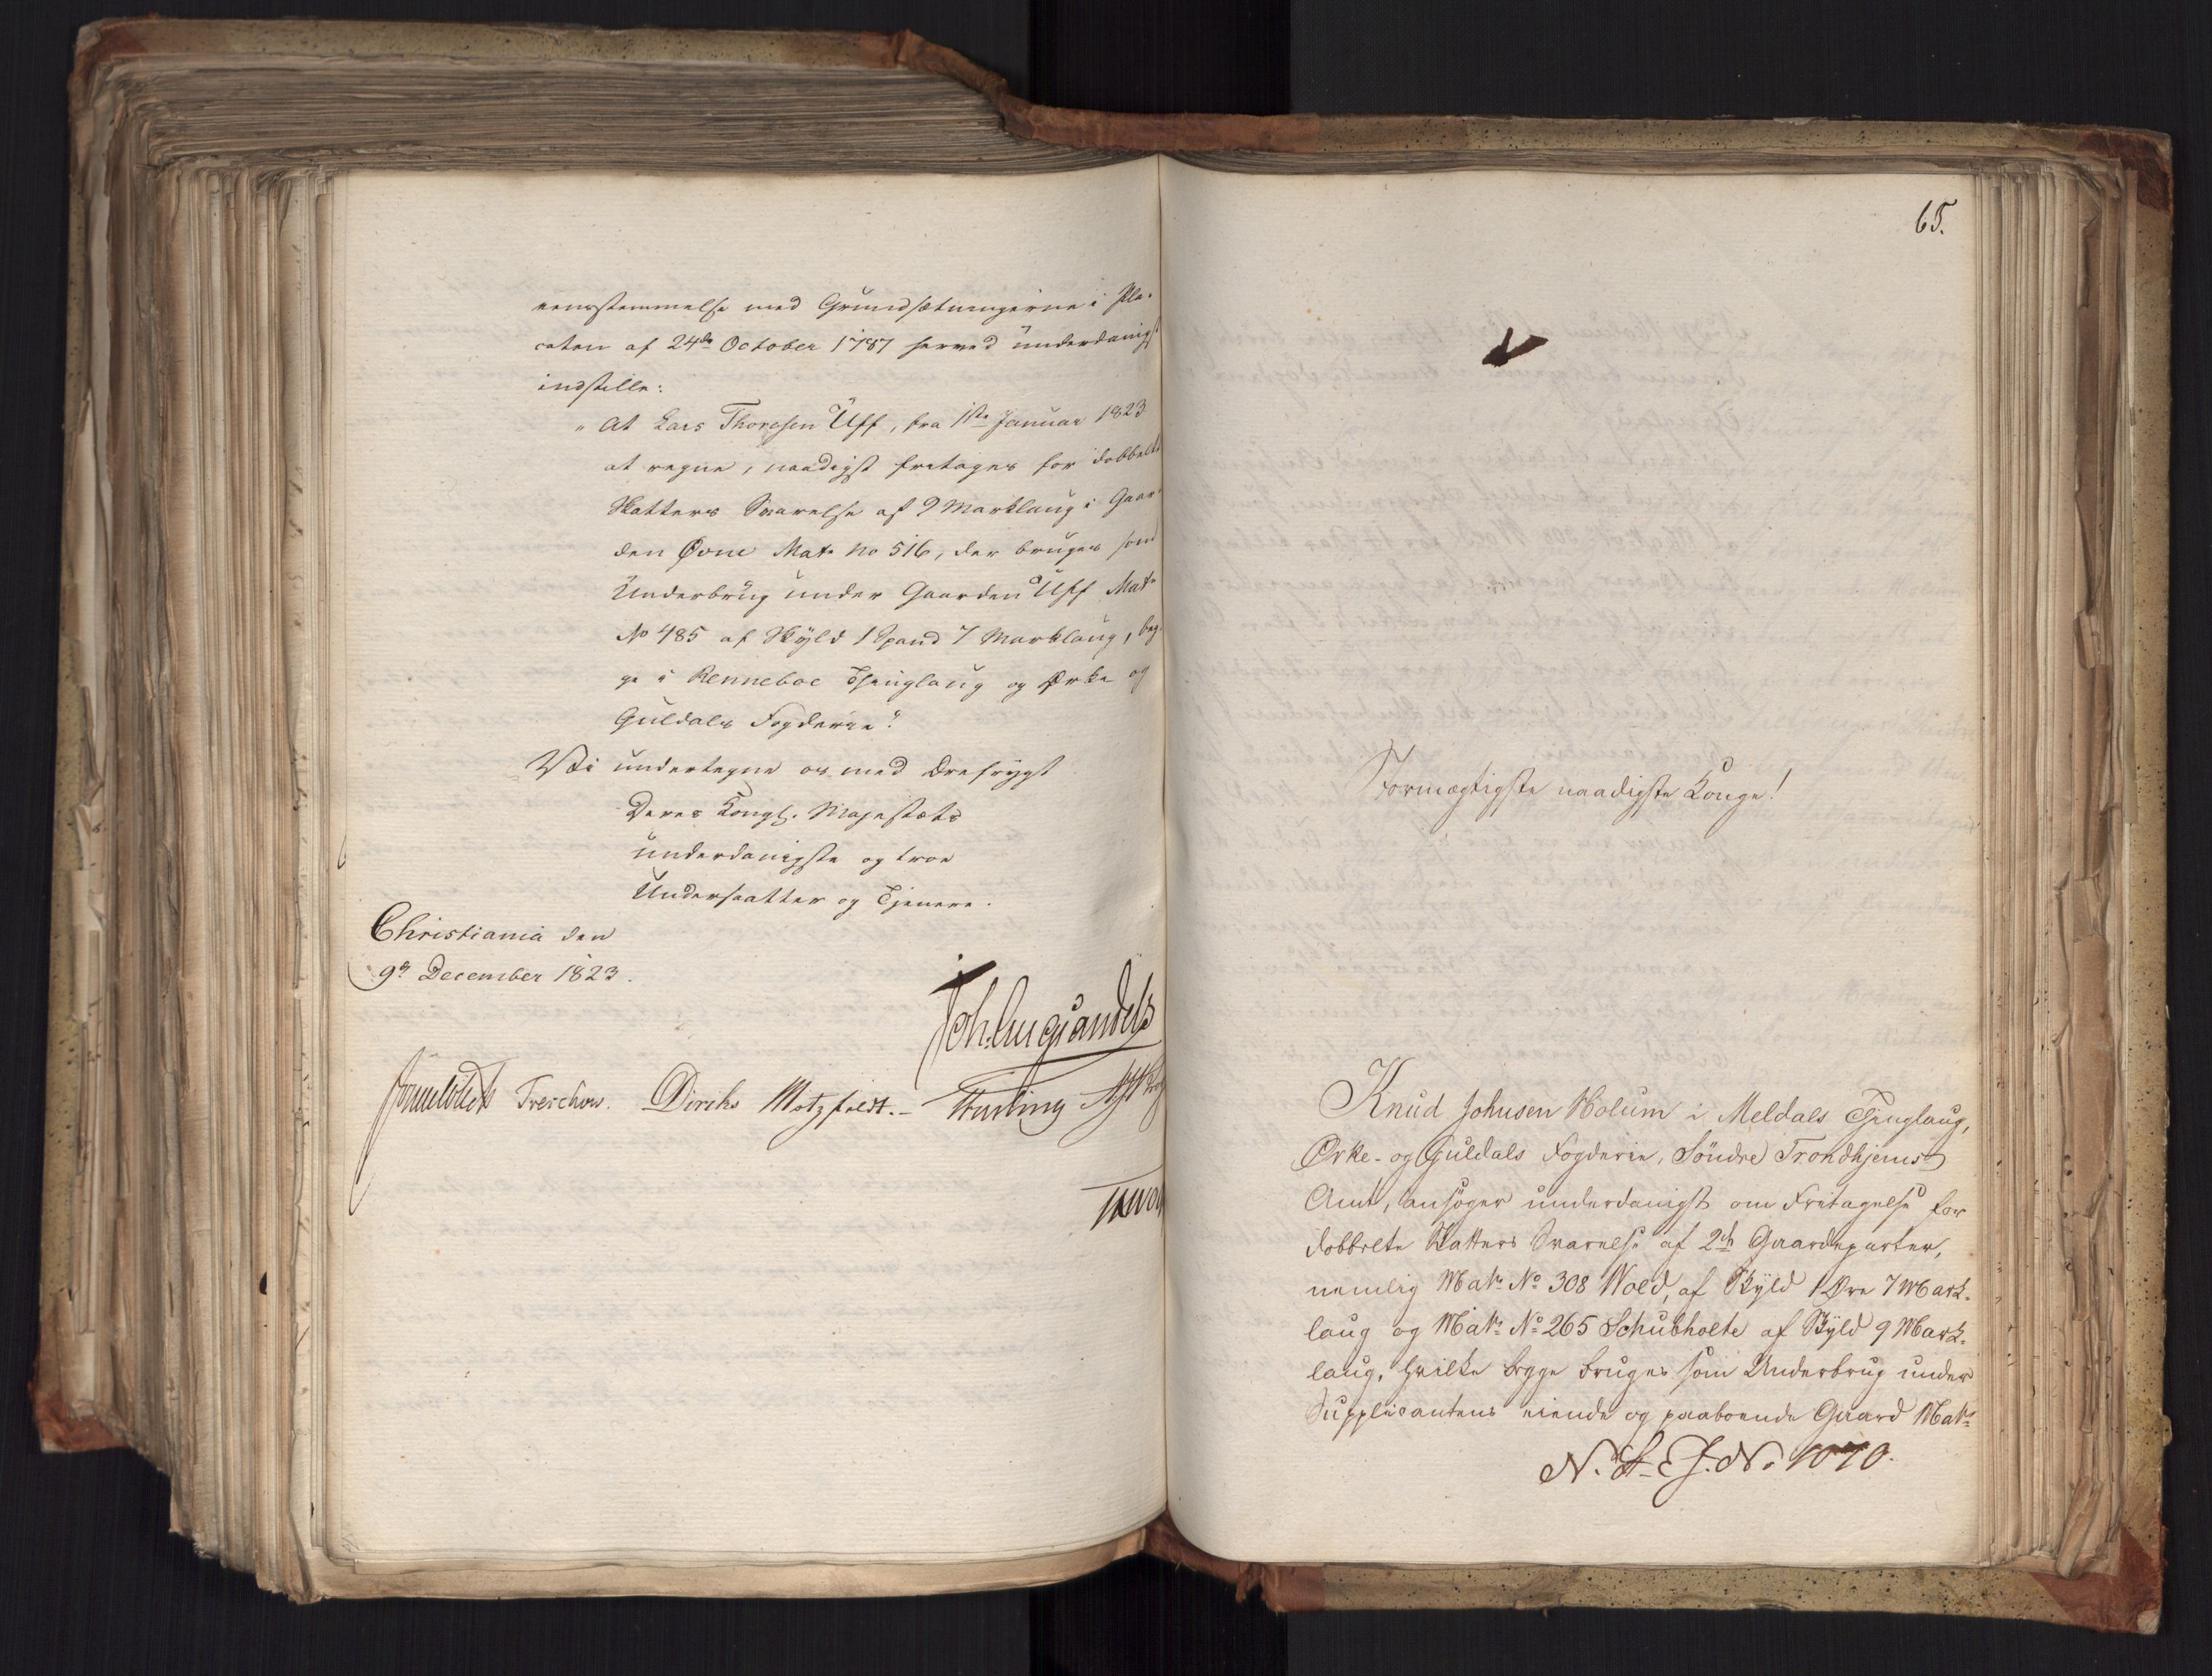 eensstemmelse med Grundsætningerne i Pla-
caten af 24de October 1787 herved underdanigst
indstille:
"At Lars Thoresen Uff, fra 1ste Januar 1823
at regne, naadigst fritages for dobbelte
Skatters Svarelse af 9 Marklaug i Gaar-
den Øvne Mats No 516, der bruges som
Underbrug under Gaarden Uff Mats
No 485 af Skyld 1 Spand 7 Marklaug, beg-
ge i Renneboe Thinglaug og Orke og
Guldals Fogderie."
Vi undertegne os med Ærefrygt
Deres Kongl. Majestæts
underdanigste og troe
Undersaatter og Tjenere.
Christiania den
9de December 1823.
Joh. Aug Sandels
Sommerhielm Treschow. Diriks Motzfeldt.- Fasting
65.
Stormægtigste naadigste Konge!
Knud Johnsen Holum i Meldals Thinglaug,
Orke- og Guldals Fogderie, Söndre Trondhjems
Amt, ansöger underdanigst om Fritagelse for
dobbelte Skatters Svarelse af 2de Gaardeparter,
nemlig Mats No 308 Wold, af Skyld 1 Øre 7 Mark-
laug og Mats No 265 Schubholte af Skyld 9 Mark-
laug, hvilke begge bruges som Underbrug under
Supplicantens eiende og paaboende Gaard Mats
N. St. E. J. No 1070.